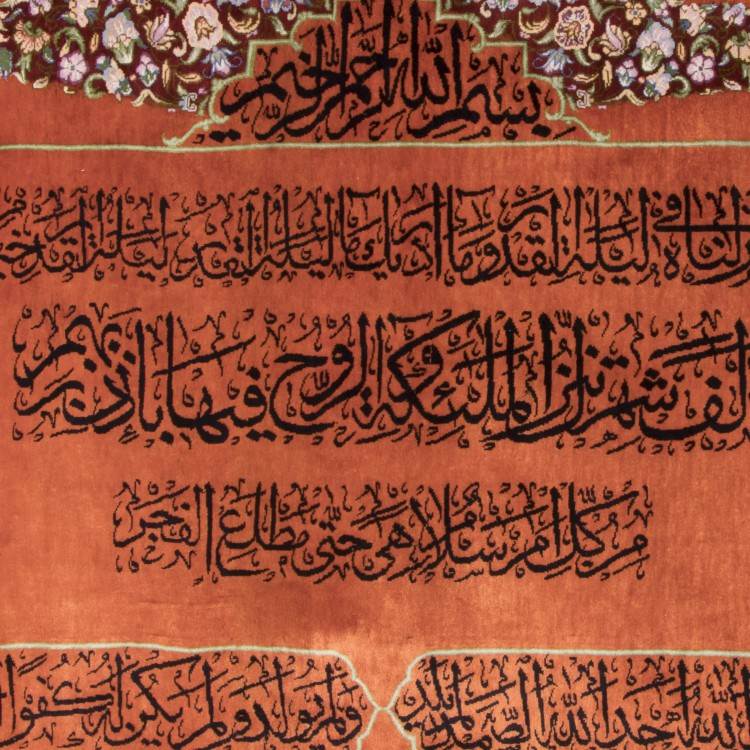 بسم الله الرحمن الرحيم
نزلناه في ليلة القدر وما ادريك ما ليلة القدر ليلة القدر خير
الف شهر تنزل الملئكة و الروح فيها بإذن ربهم
من كل امر سلام هي حتى مطلع الفجر
الله احد الله الصمد لم يلد ولم يولد ولم يكن له كفوا